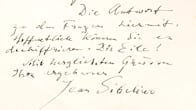 Die Antwort
zu den Fragen hiermit.
Hoffentlich können Sie es
dechiffrieren. Die Eile!
Mit herzlichen Grüssen
Ihr ergebener
Jean Sibelius